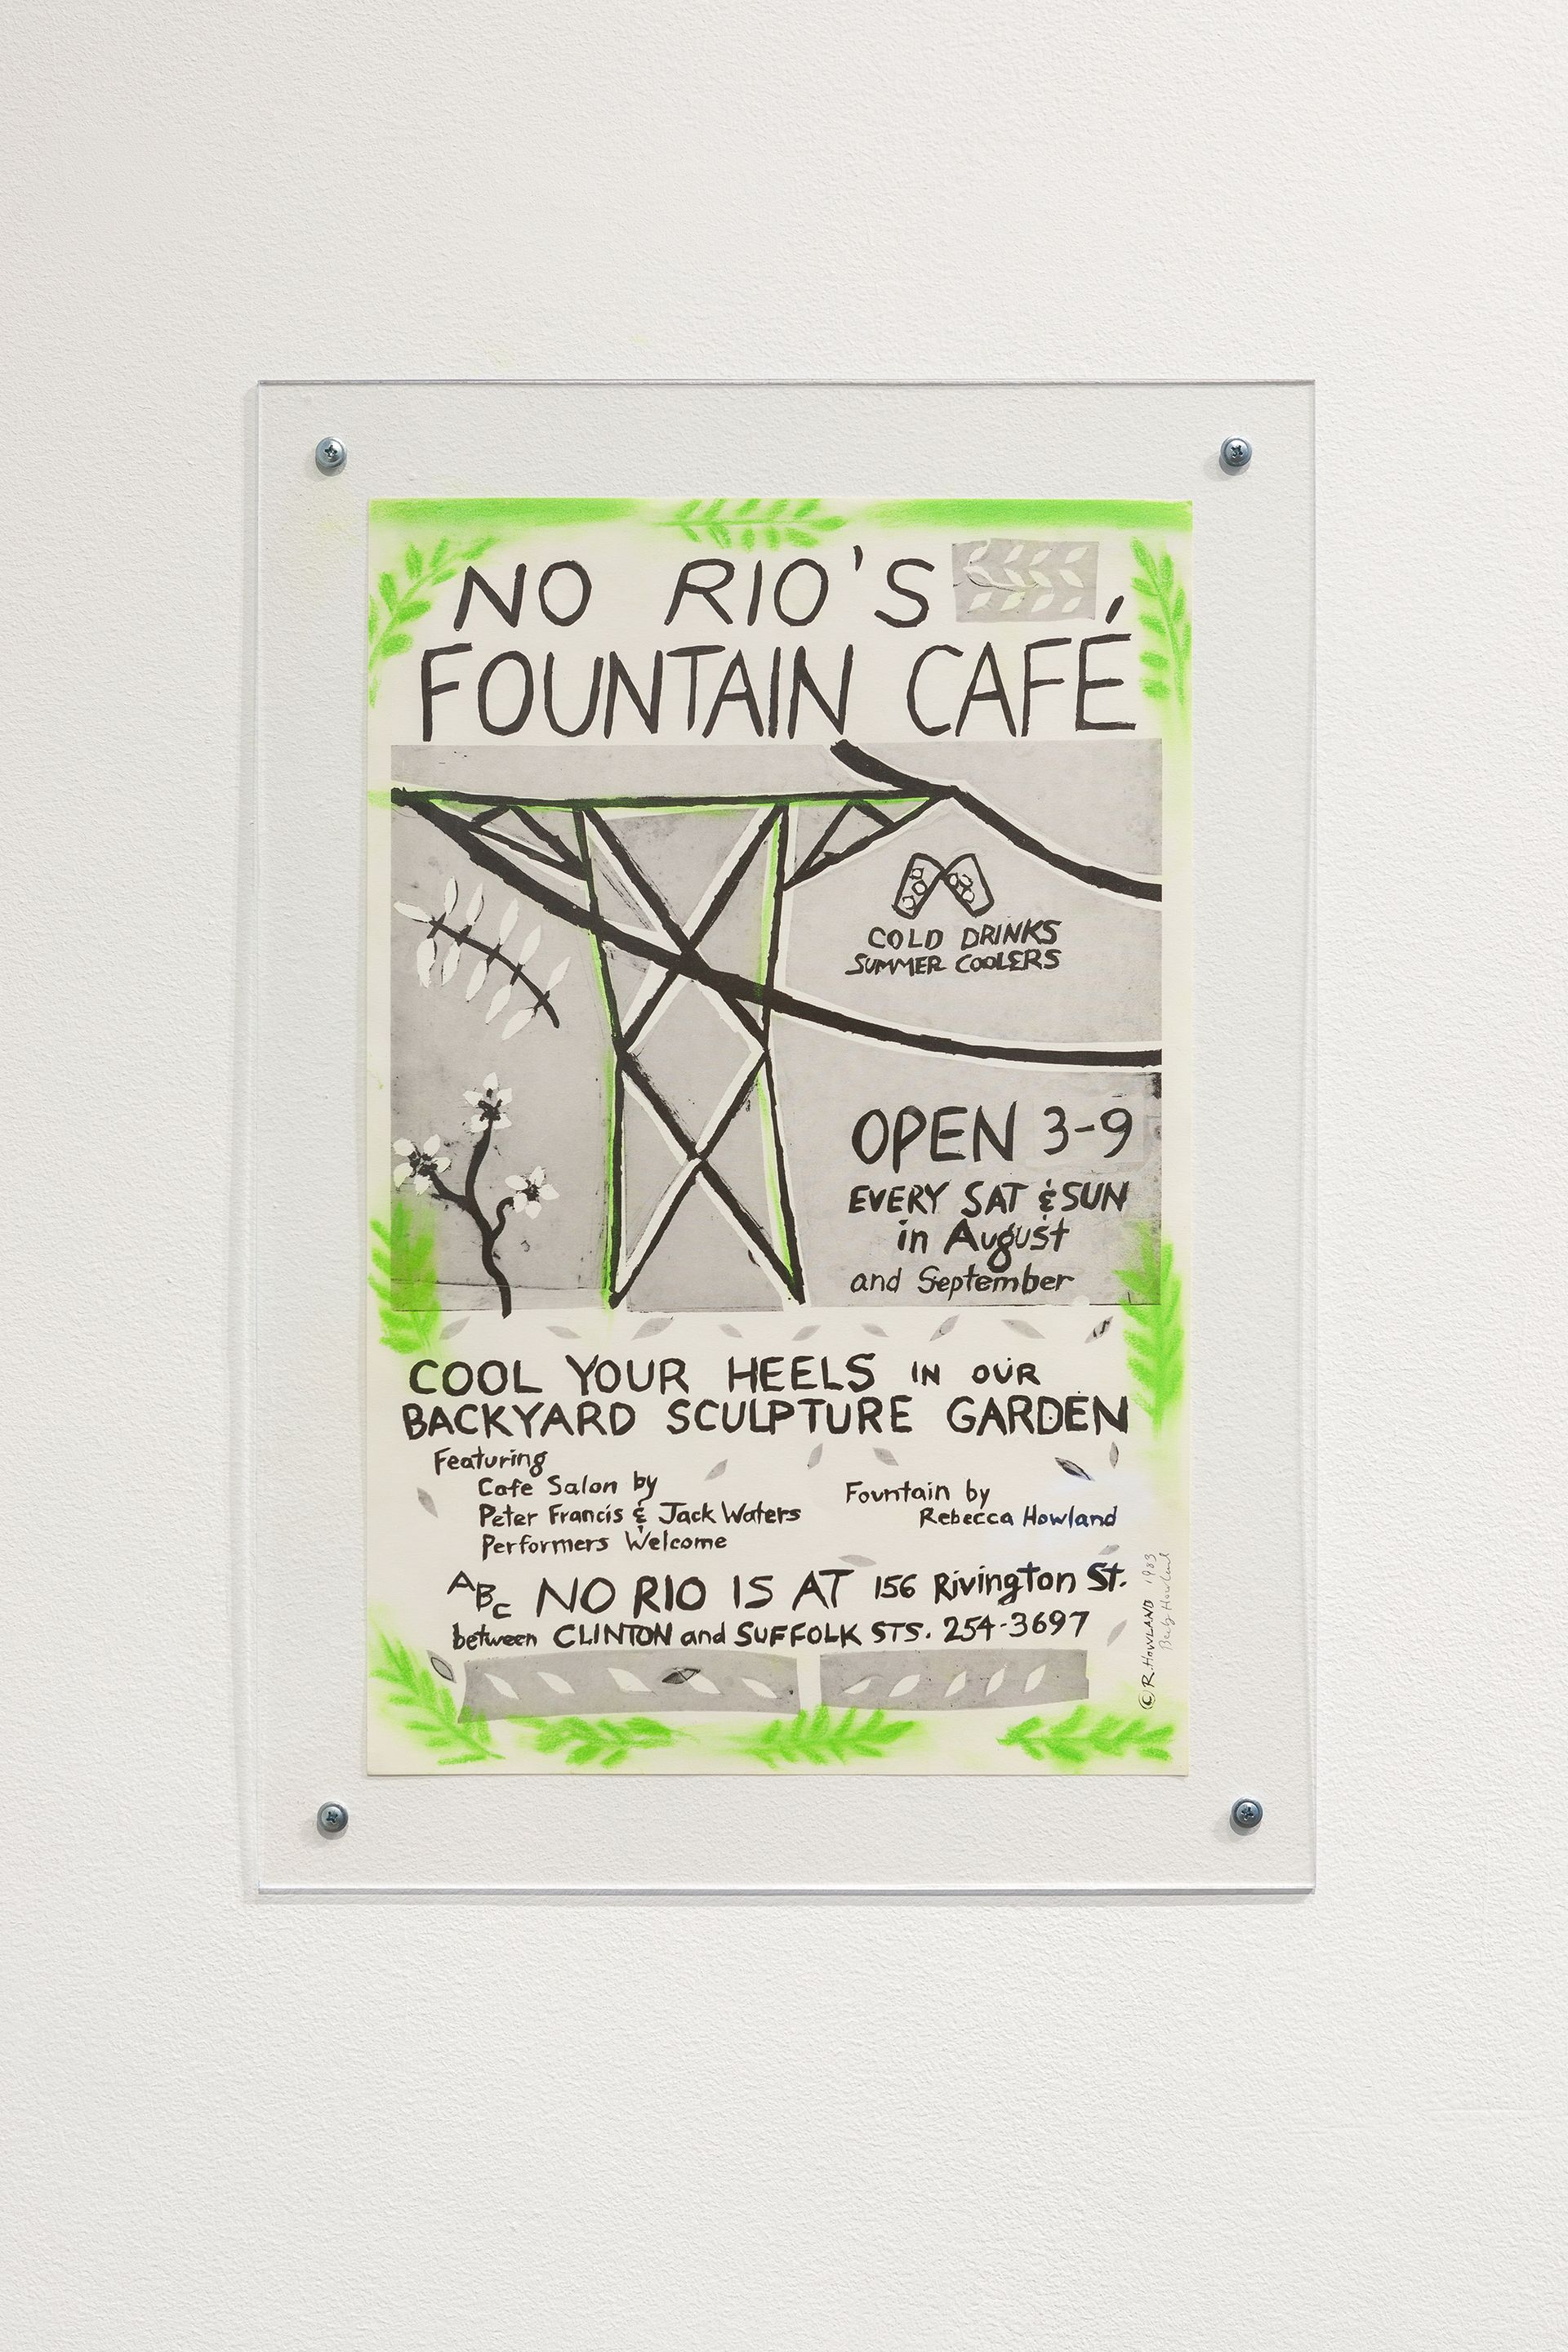 NO RIO'S
FOUNTAIN CAFÉ
COLD DRINKS
SUMMER COOLERS
OPEN 3-9
EVERY SAT & SUN
in August
and September
COOL YOUR HEELS IN OUR
BACKYARD SCULPTURE GARDEN
Featuring
Cafe Salon by
Peter Francis & Jack Waters
Performers Welcome
Fountain by
Rebecca Howland
ABC NO RIO IS AT 156 Rivington St.
between CLINTON and SUFFOLK STS. 254-3697
© R. HOWLAND 1983
Becky Howland